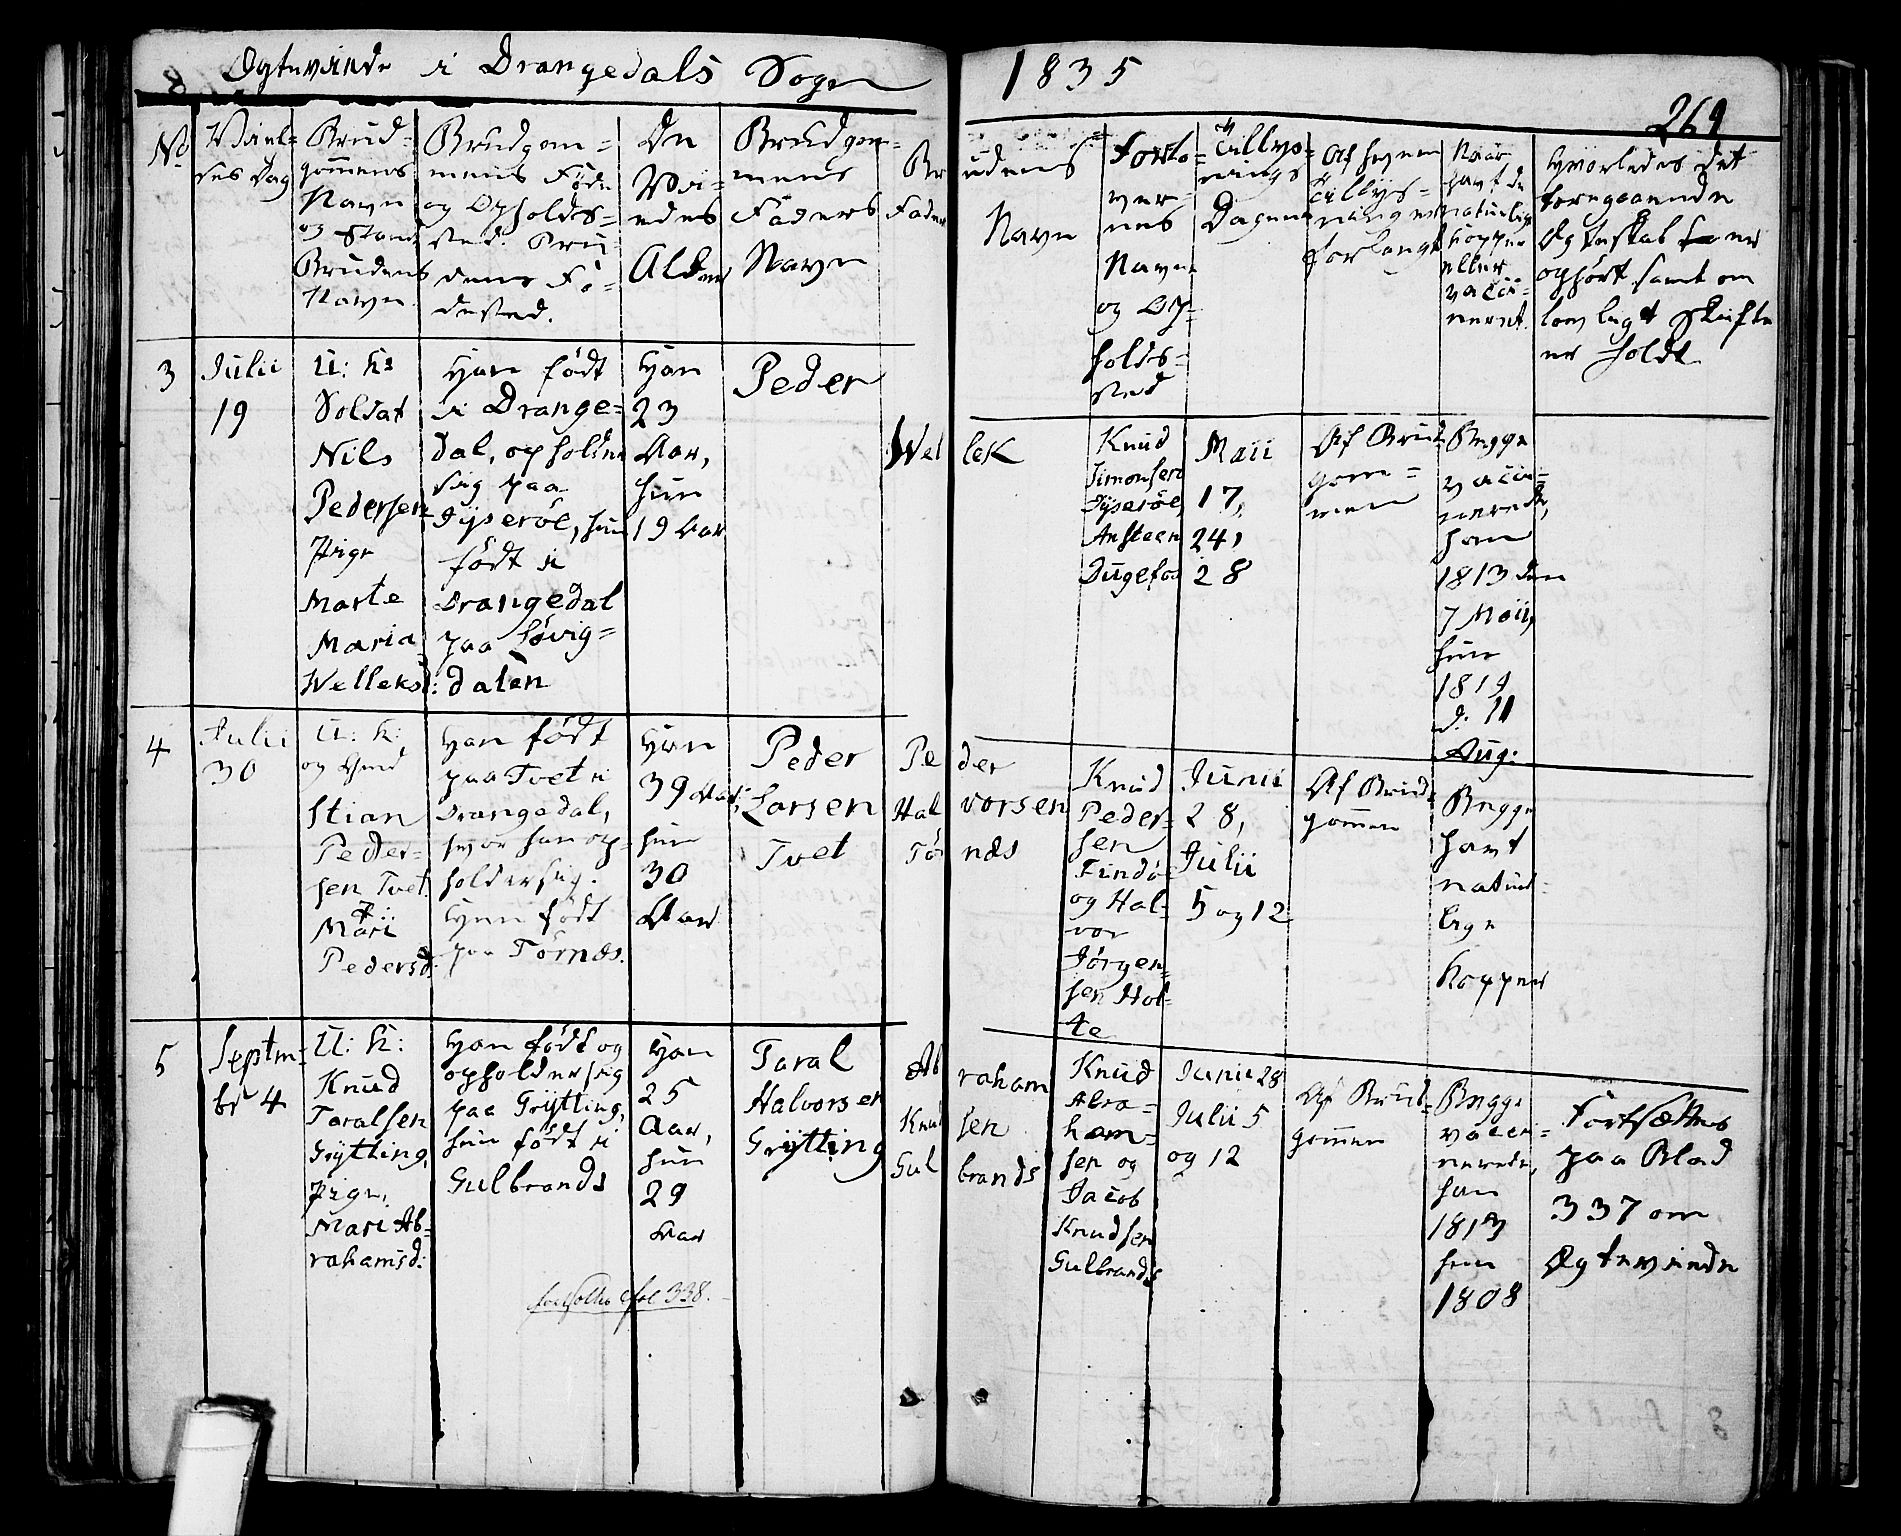 Ægteviede i Drangedals Sogn
1835
269
No
Viel-
ses Dag
Brud-
gommens
Navn
og Stand
Brudens
Navn
Brudgom-
mens Føde
og Opholds-
sted. Bru-
dens Fø-
dested.
De
Vi-
edes
Alder
Brudgom-
mens
Faders
Navn
Brudens
Faders Navn
Forlo-
ver-
nes
Navn
og Op-
holds-
sted
Tillys-
nings
Dagene
Af hvem
Tillys-
ningen
forlangt
Naar
havt de
naturlige
Kopper
eller
vacci-
neret.
Hvorledes det
foregaaende
Ægteskab er
ophørt samt om
lovligt Skifte
er holdt
3
Julii
19
U: K:
Soldat
Nils
Pedersen
Pige
Marte
Maria
Welleksd:
Han født
i Drange-
dal, opholder
sig paa
Dyserøe, hun
født i
Drangedal
paa Løvig-
dalen
Han
23
Aar,
hun
19 Aar
Peder
Wellek
Knud
Simonsen
Dyserøe,
Ansteen
Dugefos
Maii
17,
24,
28
Af Brud-
gom-
men
Begge
vacci-
nerede,
han
1813 den
7 Maii,
hun
1819
d. 11
Aug:
4
Julii
30
U: K:
og
Stian
Peder-
sen Tvet.
P:
Mari
Pedersd:
Han født
paa Tvet i
Drangedal,
hvor han op-
holder sig.
Hun født
paa Tørnæs.
Han
39 Aar,
hun
30
Aar
Peder
Larsen
Tvet
Peder
Halvorsen
Tørnæs
Knud
Peder-
sen
Findø
og Hal-
vor
Jørgen-
sen Hol-
te
Junii
28,
Julii
5 og 12
Af Brud-
gommen
Begge
havt
natur-
lige
Kopper
5
Septem-
br 4
U: K:
Knud
Taralsen
Grytting,
Pige,
Mari Ab-
rahamsd:
Han født og
opholder sig
paa Grytting,
hun født i
Gulbrands
Han
25
Aar,
hun
29
Aar
Taral
Halvorsen
Grytting
Abraham
Knudsen
Gulbrands
Knud
Abra-
ham-
sen og
Jacob
Knudsen
Gulbrands
Junii 28
Julii 5
og 12
Af Brud-
gommen
Begge
vacci-
nerede,
han
1813
hun
1808
Fortsættes
paa Blad
337 om
Ægteviede
fortsættes fol 338.